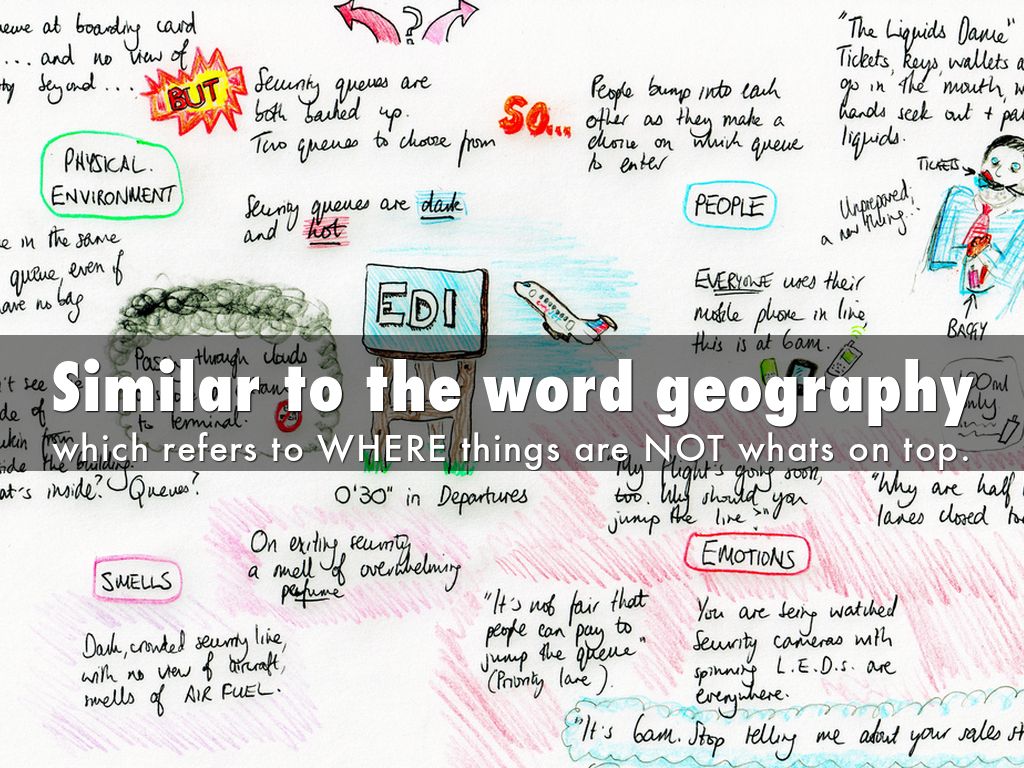 queue at boarding card
.... and no view of
beyond...
BUT
Security queues are
both backed up.
Two queues to choose from
SO...
?
People bump into each
other as they make a
choice on which queue
to enter
"The Liquids Dance"
Tickets, keys, wallets
go in the mouth,
hands seek out +
liquids.
TICKETS
Unprepared;
a new thing...
BAGGY
100ml
only
PHYSICAL
ENVIRONMENT
in the same
queue, even if
have no bag
Security queues are dark
and hot
PEOPLE
EVERYONE uses their
mobile phone in line,
this is at 6am.
EDI
Pass through clouds
to terminal.
Similar to the word geography
which refers to WHERE things are NOT whats on top.
see
of
from
the building.
what's inside? Queues?
0'30" in Departures
"My flight's going soon,
too. Why should you
jump the line?"
"Why are half
lanes closed
SMELLS
On exiting security
a smell of overwhelming
perfume
Dark, crowded security line,
with no view of aircraft,
smells of AIR FUEL.
EMOTIONS
"It's not fair that
people can pay to
jump the queue"
(Priority lane).
You are being watched
Security cameras with
spinning L.E.D.s. are
everywhere.
"It's 6am. Stop telling me about your sales